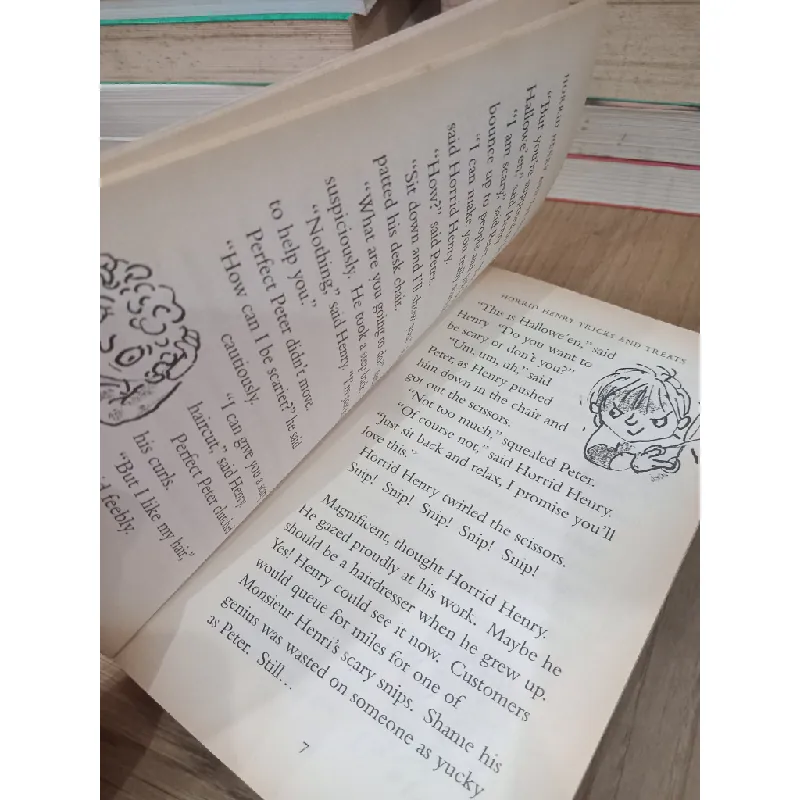 HORRID HENRY
"But you're supposed
Hallowe'en," said Henry.
"I am scary,"
bounce up to people and
"I can make you really
said Horrid Henry.
"How?" said Peter.
"Sit down and I'll show you."
patted his desk chair.
"What are you going to do?"
suspiciously. He took a step back.
"Nothing," said Henry. "I'm
to help you."
Perfect Peter didn't move.
"How can I be scarier?" he said
cautiously.
"I can give you a scary
haircut," said Henry.
Perfect Peter clutched
his curls.
"But I like my hair,"
feebly.
HORRID HENRY TRICKS AND TREATS
"This is Hallowe'en," said
Henry. "Do you want to
be scary or don't you?"
"Um, um, uh," said
Peter, as Henry pushed
him down in the chair and
got out the scissors.
"Not too much," squealed Peter.
"Of course not," said Horrid Henry.
"Just sit back and relax, I promise you'll
love this."
Horrid Henry twirled the scissors.
Snip! Snip! Snip! Snip! Snip!
Magnificent, thought Horrid Henry.
He gazed proudly at his work. Maybe he
should be a hairdresser when he grew up.
Yes! Henry could see it now. Customers
would queue for miles for one of
Monsieur Henri's scary snips. Shame his
genius was wasted on someone as yucky
as Peter. Still...
7